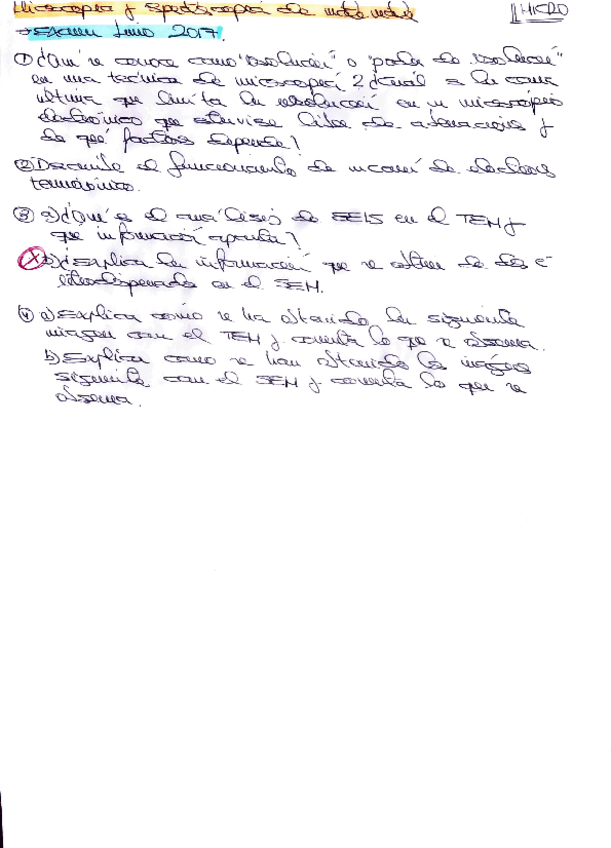 Microscopía y Espectroscopía de materiales
MICRO
→ Examen Junio 2017.
① ¿Qué se conoce como "resolución" o "poder de resolución"
en una técnica de microscopía? ¿Cuál es la causa
última que limita la resolución en un microscopio
electrónico que estuviese libre de aberraciones y
de qué factores depende?
② Describe el funcionamiento de un cañón de electrones
termoiónico.
③ a) ¿Qué es el análisis de EELS en el TEM y
qué información aporta?
b) Explica la información que se obtiene de los e⁻
retrodispersados en el SEM.
④ a) Explica cómo se ha obtenido la siguiente
imagen con el TEM y comenta lo que se observa.
b) Explica como se han obtenido las imágenes
siguientes con el SEM y comenta lo que se
observa.